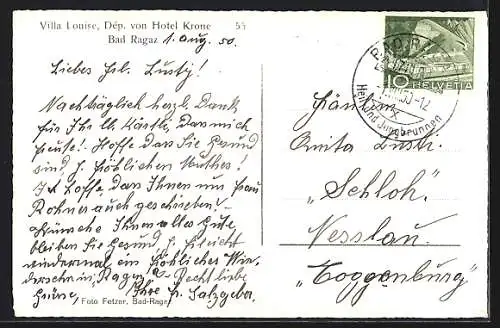 Villa Louise, Dép. von Hotel Krone 55
Bad Ragaz 1. Aug. 50.
Liebes Frl. Lusty!
Nachträglich herzl. Dank
für Ihr lb. Kärtli, das mich
freute! Hoffe dass Sie gesund
sind & fröhlichen Muthes!
Ich hoffe dass Ihnen uns Frau
Rohner auch geschrieben!
Wünsche Ihnen alles Gute,
bleiben Sie gesund & vielleicht
wiedermal ein fröhliches Wie-
dersehn in Ragaz! Recht liebe
Grüsse, Ihre Fr. Salzgeber.
Foto Fetzer, Bad-Ragaz
BAD RAGAZ
50-12
Heil und Jungbrunnen
10 HELVETIA
Fräulein
Anita Lusti.
"Schloh."
Nesslau.
"Toggenburg"